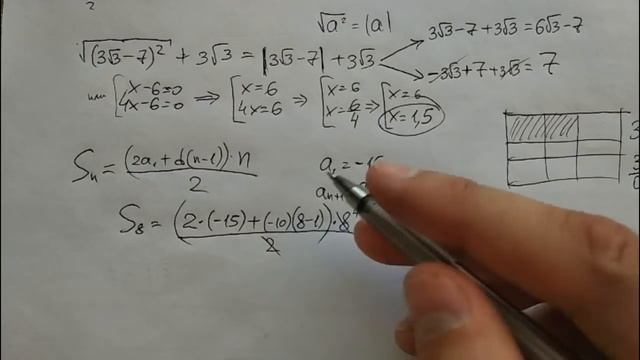 2
√a² = |a|
√(3√3-7)² + 3√3 = |3√3-7| + 3√3
3√3-7+3√3=6√3-7
-3√3+7+3√3=7
или [x-6=0 4x-6=0 ⇒ [x=6 4x=6 ⇒ [x=6 x=6/4 ⇒ [x=6 x=1,5
Sₙ = (2a₁+d(n-1))·n / 2
a₁ = -15
aₙ₊₁
S₈ = (2·(-15)+(-10)(8-1))·8 / 2
3
3